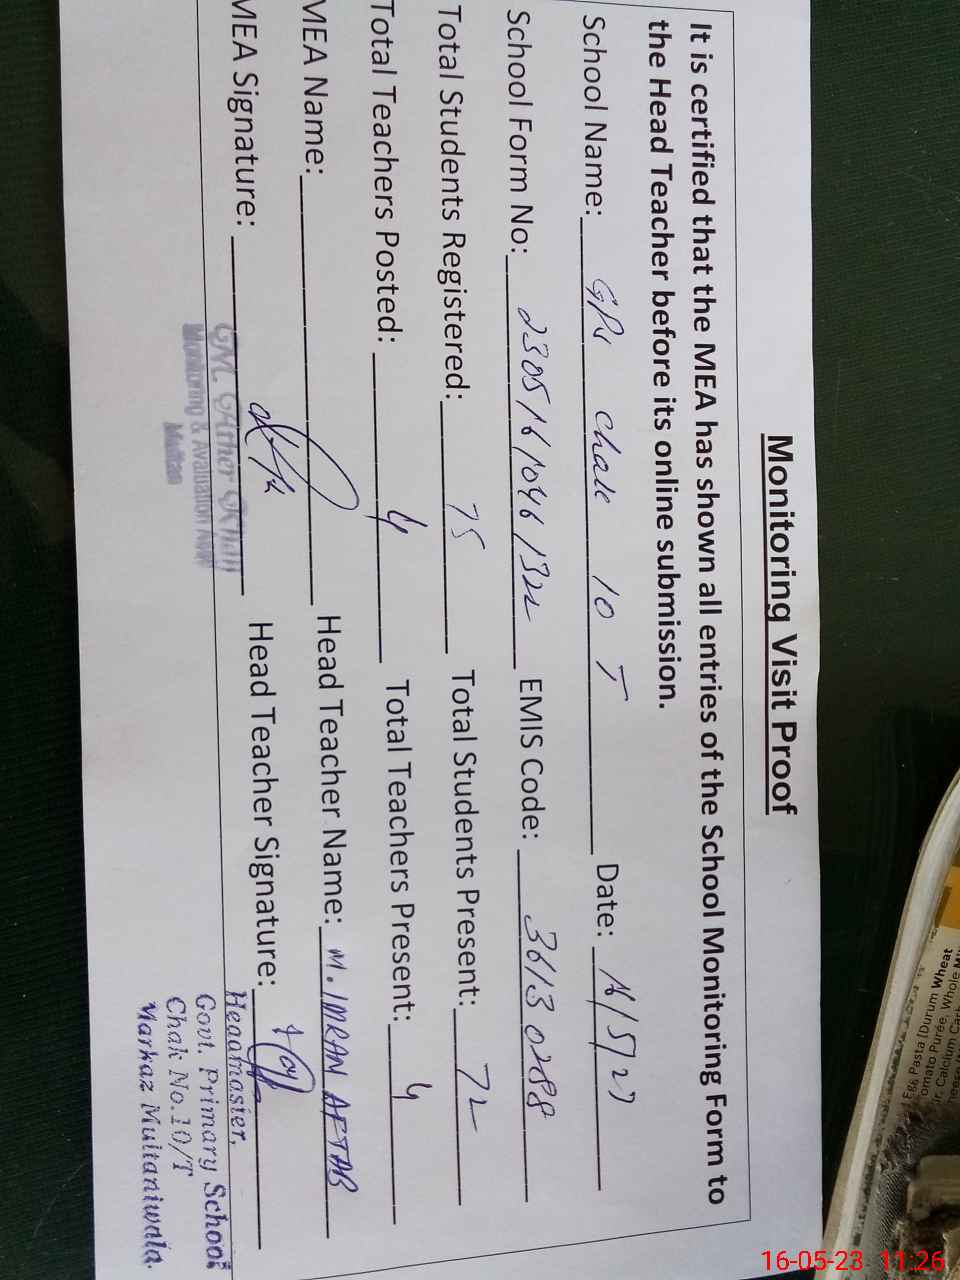 Monitoring Visit Proof
It is certified that the MEA has shown all entries of the School Monitoring Form to
the Head Teacher before its online submission.
School Name: GPS chak 10 T Date: 16/5/23
School Form No: 23051610461322 EMIS Code: 36130288
Total Students Registered: 75 Total Students Present: 72
Total Teachers Posted: 4 Total Teachers Present: 4
MEA Name: Head Teacher Name: M. IMRAN AFTAB
MEA Signature: Head Teacher Signature:
Monitoring & Evaluation
Multan
Headmaster,
Govt. Primary School
Chak No.10/T
Markaz Multaniwala.
Egg Pasta (Durum Wheat
16-05-23 11:26